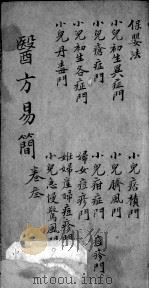 保嬰法
小兒初生異症門
小兒初生各症門
小兒瘡症門
小兒丹毒門
小兒痞積門
小兒臍風門
小兒疳症門
痘疹門
婦女痘疹門
妊婦產婦痘疹門
小兒急慢驚風門
醫方易簡 卷叁